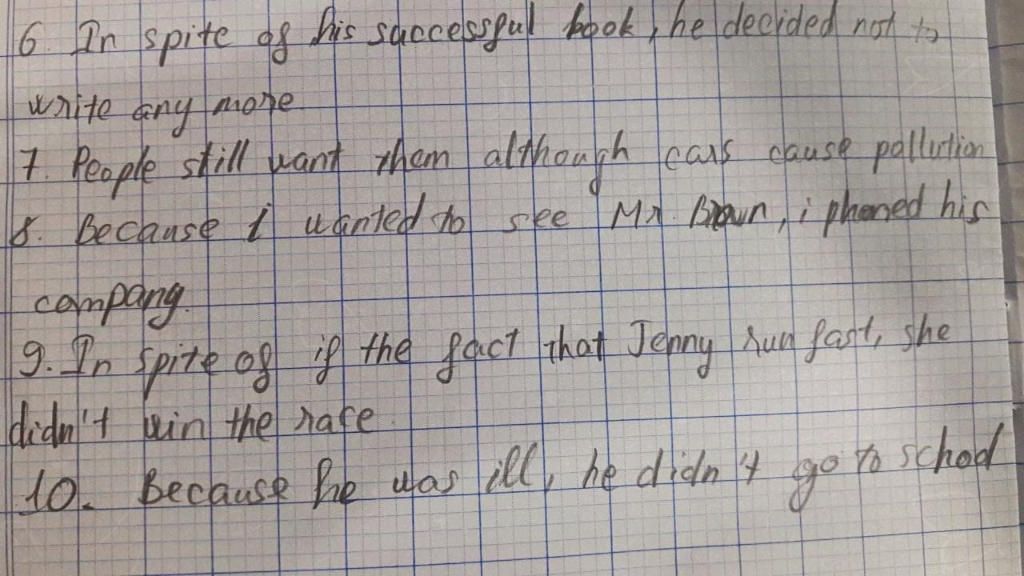 6. In spite of his successful book, he decided not to
write any more
7. People still want them although cars cause pollution
8. Because i wanted to see Mr. Brown, i phoned his
company.
9. In spite of if the fact that Jenny run fast, she
didn't win the race.
10. Because he was ill, he didn't go to school